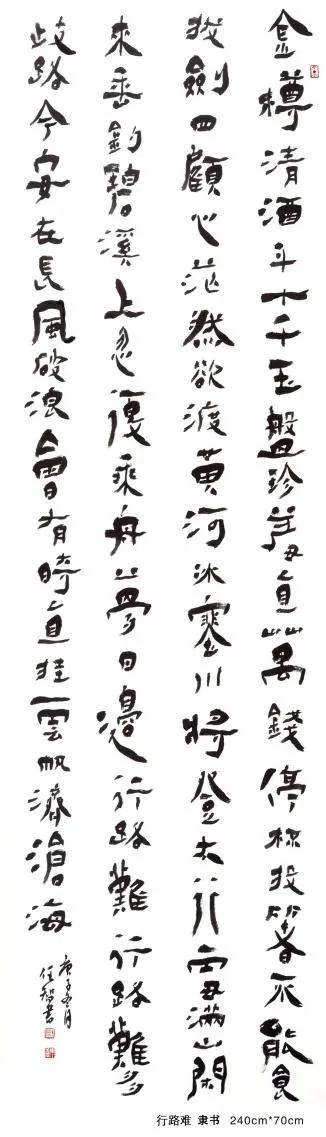 金樽清酒斗十千玉盤珍羞直萬錢停杯投箸不能食
拔劍四顧心茫然欲渡黄河冰塞川將登太行雪滿山閑
來垂釣碧溪上忽復乘舟夢日邊行路難行路難多
歧路今安在長風破浪會有時直挂雲帆濟滄海
庚子月
任智書
行路难 隶书 240cm*70cm